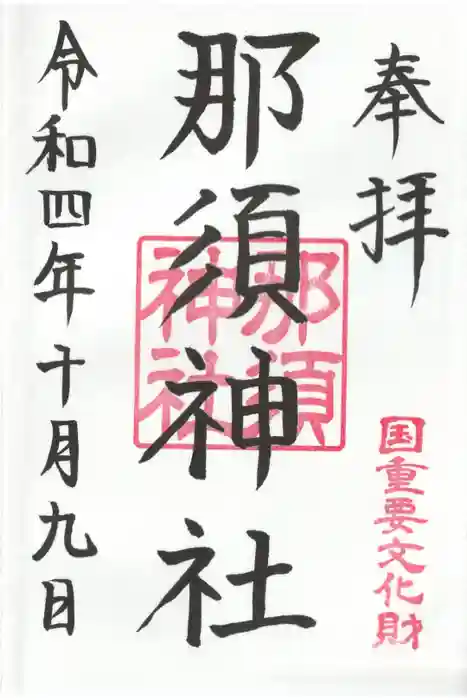 奉拝
国重要文化財
那須神社
那須神社
令和四年十月九日